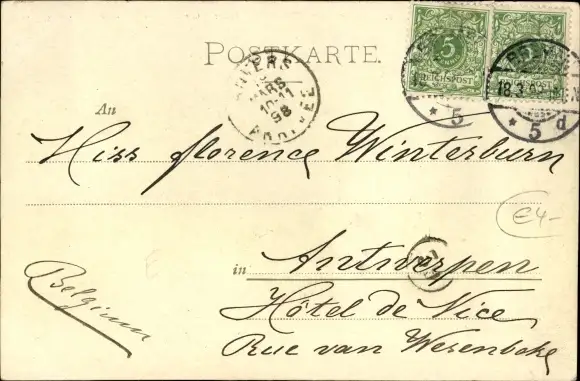 POSTKARTE.
5
REICHSPOST
5
REICHSPOST
BREMEN
18.3.98
* 5 d
* 5
ANVERS
MARS
10-11
98
An
Miss Florence Winterburn
€4-
in Antwerpen
Belgium
Hôtel de Nice
Rue van Wesenbeke